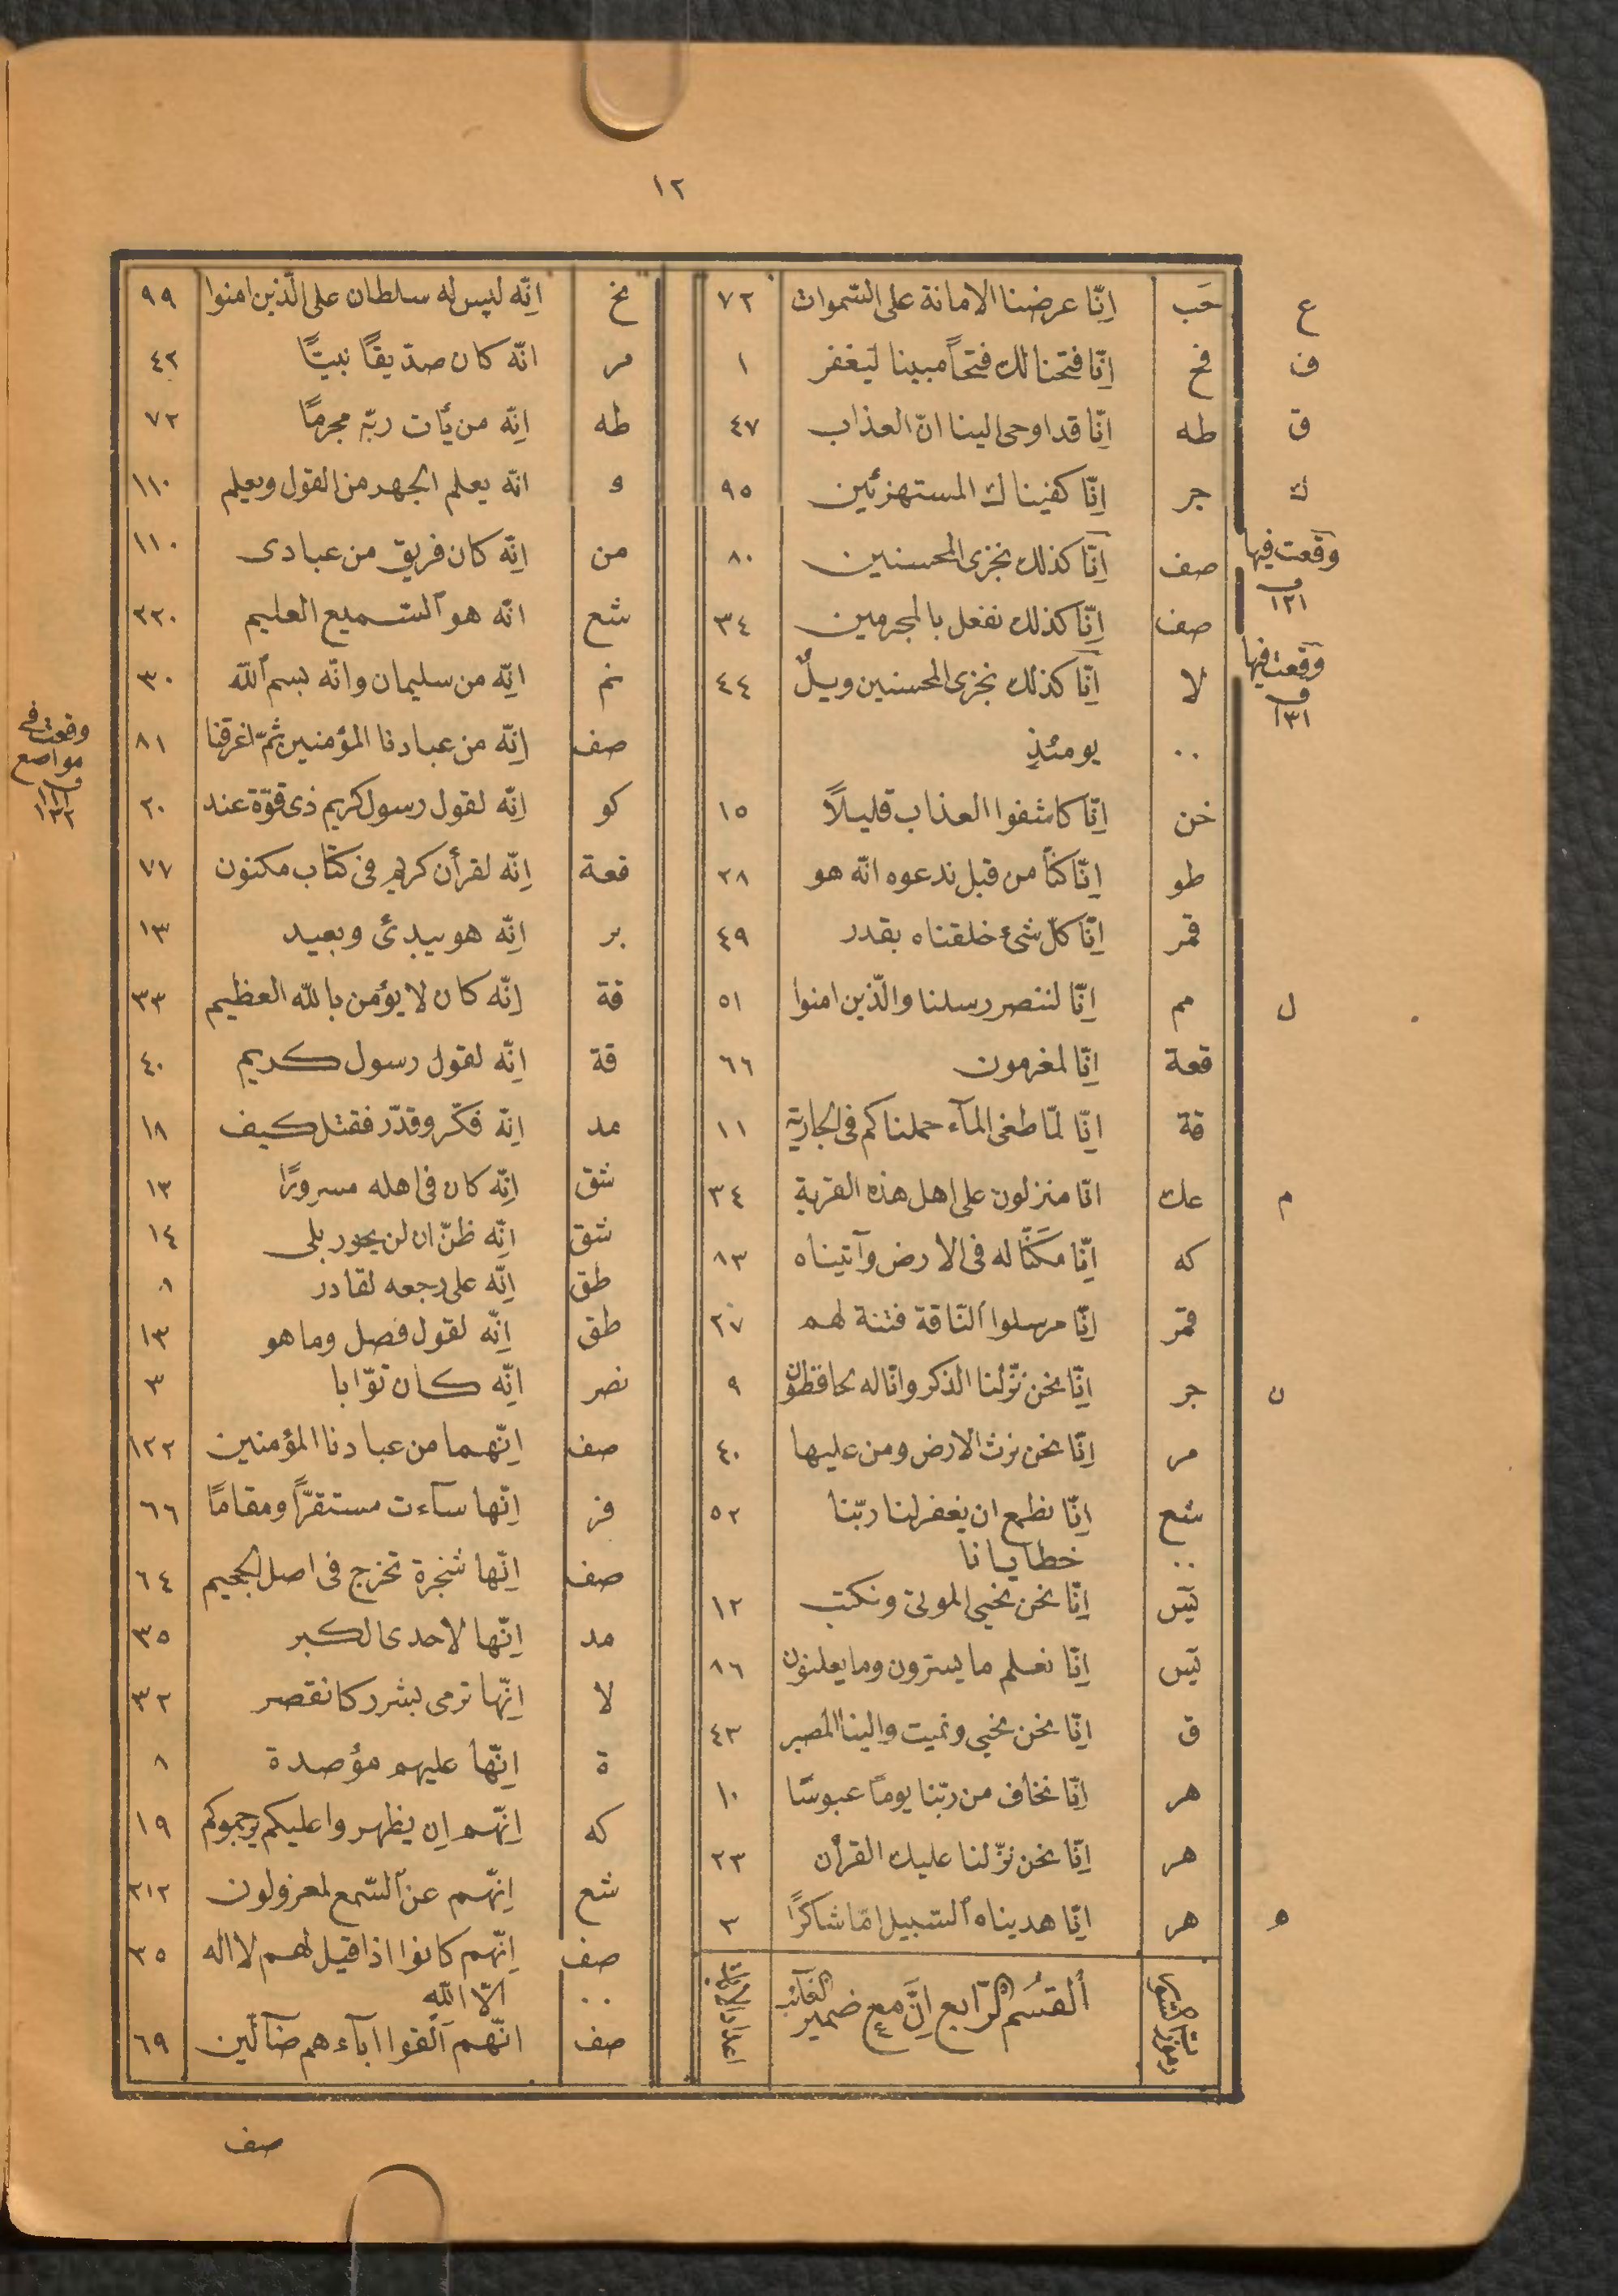 ١٢
ع حب اِنّا عرضنا الامانة على السّموات ٧٢
ف فح اِنّا فتحنا لك فتحاً مبينا ليغفر ١
ق طه اِنّا قد اوحى الينا انّ العذاب ٤٧
ك جر اِنّا كفيناك المستهزئين ٩٥
وقعت فيها ف ١٢١ صف اِنّا كذلك نجزى المحسنين ٨٠
صف اِنّا كذلك نفعل بالمجرمين ٣٤
وقعت فيها ف ١٣١ لا اِنّا كذلك نجزى المحسنين ويلٌ ٤٤
٠٠ يومئذٍ
خن اِنّا كاشفوا العذاب قليلاً ١٥
طو اِنّا كنّا من قبل ندعوه انّه هو ٢٨
قمر اِنّا كلّ شئ خلقناه بقدر ٤٩
ل مم اِنّا لننصر رسلنا والّذين امنوا ٥١
قعة اِنّا لمغرمون ٦٦
قة اِنّا لمّا طغى المآء حملناكم فى الجارية ١١
م عك انّا منزلون على اهل هذه القرية ٣٤
كه اِنّا مكّنّا له فى الارض وآتيناه ٨٣
قمر اِنّا مرسلوا النّاقة فتنة لهم ٢٧
ن جر اِنّا نحن نزّلنا الذكر وانّا له لحافظون ٩
مر اِنّا نحن نرث الارض ومن عليها ٤٠
شع اِنّا نطمع ان يغفر لنا ربّنا ٥٢
٠٠ خطايانا
يَس اِنّا نحن نحيى الموتى ونكتب ١٢
يَس اِنّا نعلم ما يسترون وما يعلنون ٨٦
ق اِنّا نحن نحيى ونميت والينا المصير ٤٣
هر اِنّا نخاف من ربّنا يوماً عبوسًا ١٠
هر اِنّا نحن نزّلنا عليك القرأن ٢٣
ه هر اِنّا هديناه السّبيل امّا شاكرًا ٣
رموز السّور القسم الرّابع اِنَّ مع ضمير الغائب ٤ اعداد الايات
نخ اِنّه ليس له سلطان على الّذين امنوا ٩٩
مر انّه كان صدّيقاً نبيًّا ٤٢
طه اِنّه من يأت ربّه مجرمًا ٧٢
و انّه يعلم الجهر من القول ويعلم ١١٠
من اِنّه كان فريق من عبادى ١١٠
شع انّه هو السّميع العليم ٢٢٠
نم اِنّه من سليمان وانّه بسم اللّه ٣٠
وقعت فى مواضع ف ١١١ ١٣٢ صف اِنّه من عبادنا المؤمنين ثمّ اغرقنا ٨١
كو اِنّه لقول رسول كريم ذى قوّة عند ٢٠
قعة اِنّه لقرأن كريم فى كتاب مكنون ٧٧
بر اِنّه هو يبدئ ويعيد ١٣
قة اِنّه كان لا يؤمن باللّه العظيم ٣٣
قة اِنّه لقول رسول كريم ٤٠
مد اِنّه فكّر وقدّر فقتل كيف ١٨
شق اِنّه كان فى اهله مسرورًا ١٣
شق اِنّه ظنّ ان لن يحور بلى ١٤
طق اِنّه على رجعه لقادر ٨
طق اِنّه لقول فصل وما هو ١٣
نصر اِنّه كان توّابا ٣
صف اِنّهما من عبادنا المؤمنين ١٢٢
فر اِنّها سآءت مستقرًّا ومقامًا ٦٦
صف اِنّها شجرة تخرج فى اصل الجحيم ٦٤
مد اِنّها لاحدى الكبر ٣٥
لا اِنّها ترمى بشرر كالقصر ٣٢
ة اِنّها عليهم مؤصدة ٨
كه اِنّهم اِن يظهروا عليكم يرجموكم ١٩
شع اِنّهم عن السّمع لمعزولون ٢١٢
صف اِنّهم كانوا اذا قيل لهم لا اله ٣٥
٠٠ الّا اللّه
صف انّهم الفوا ابآءهم ضآلّين ٦٩
صف